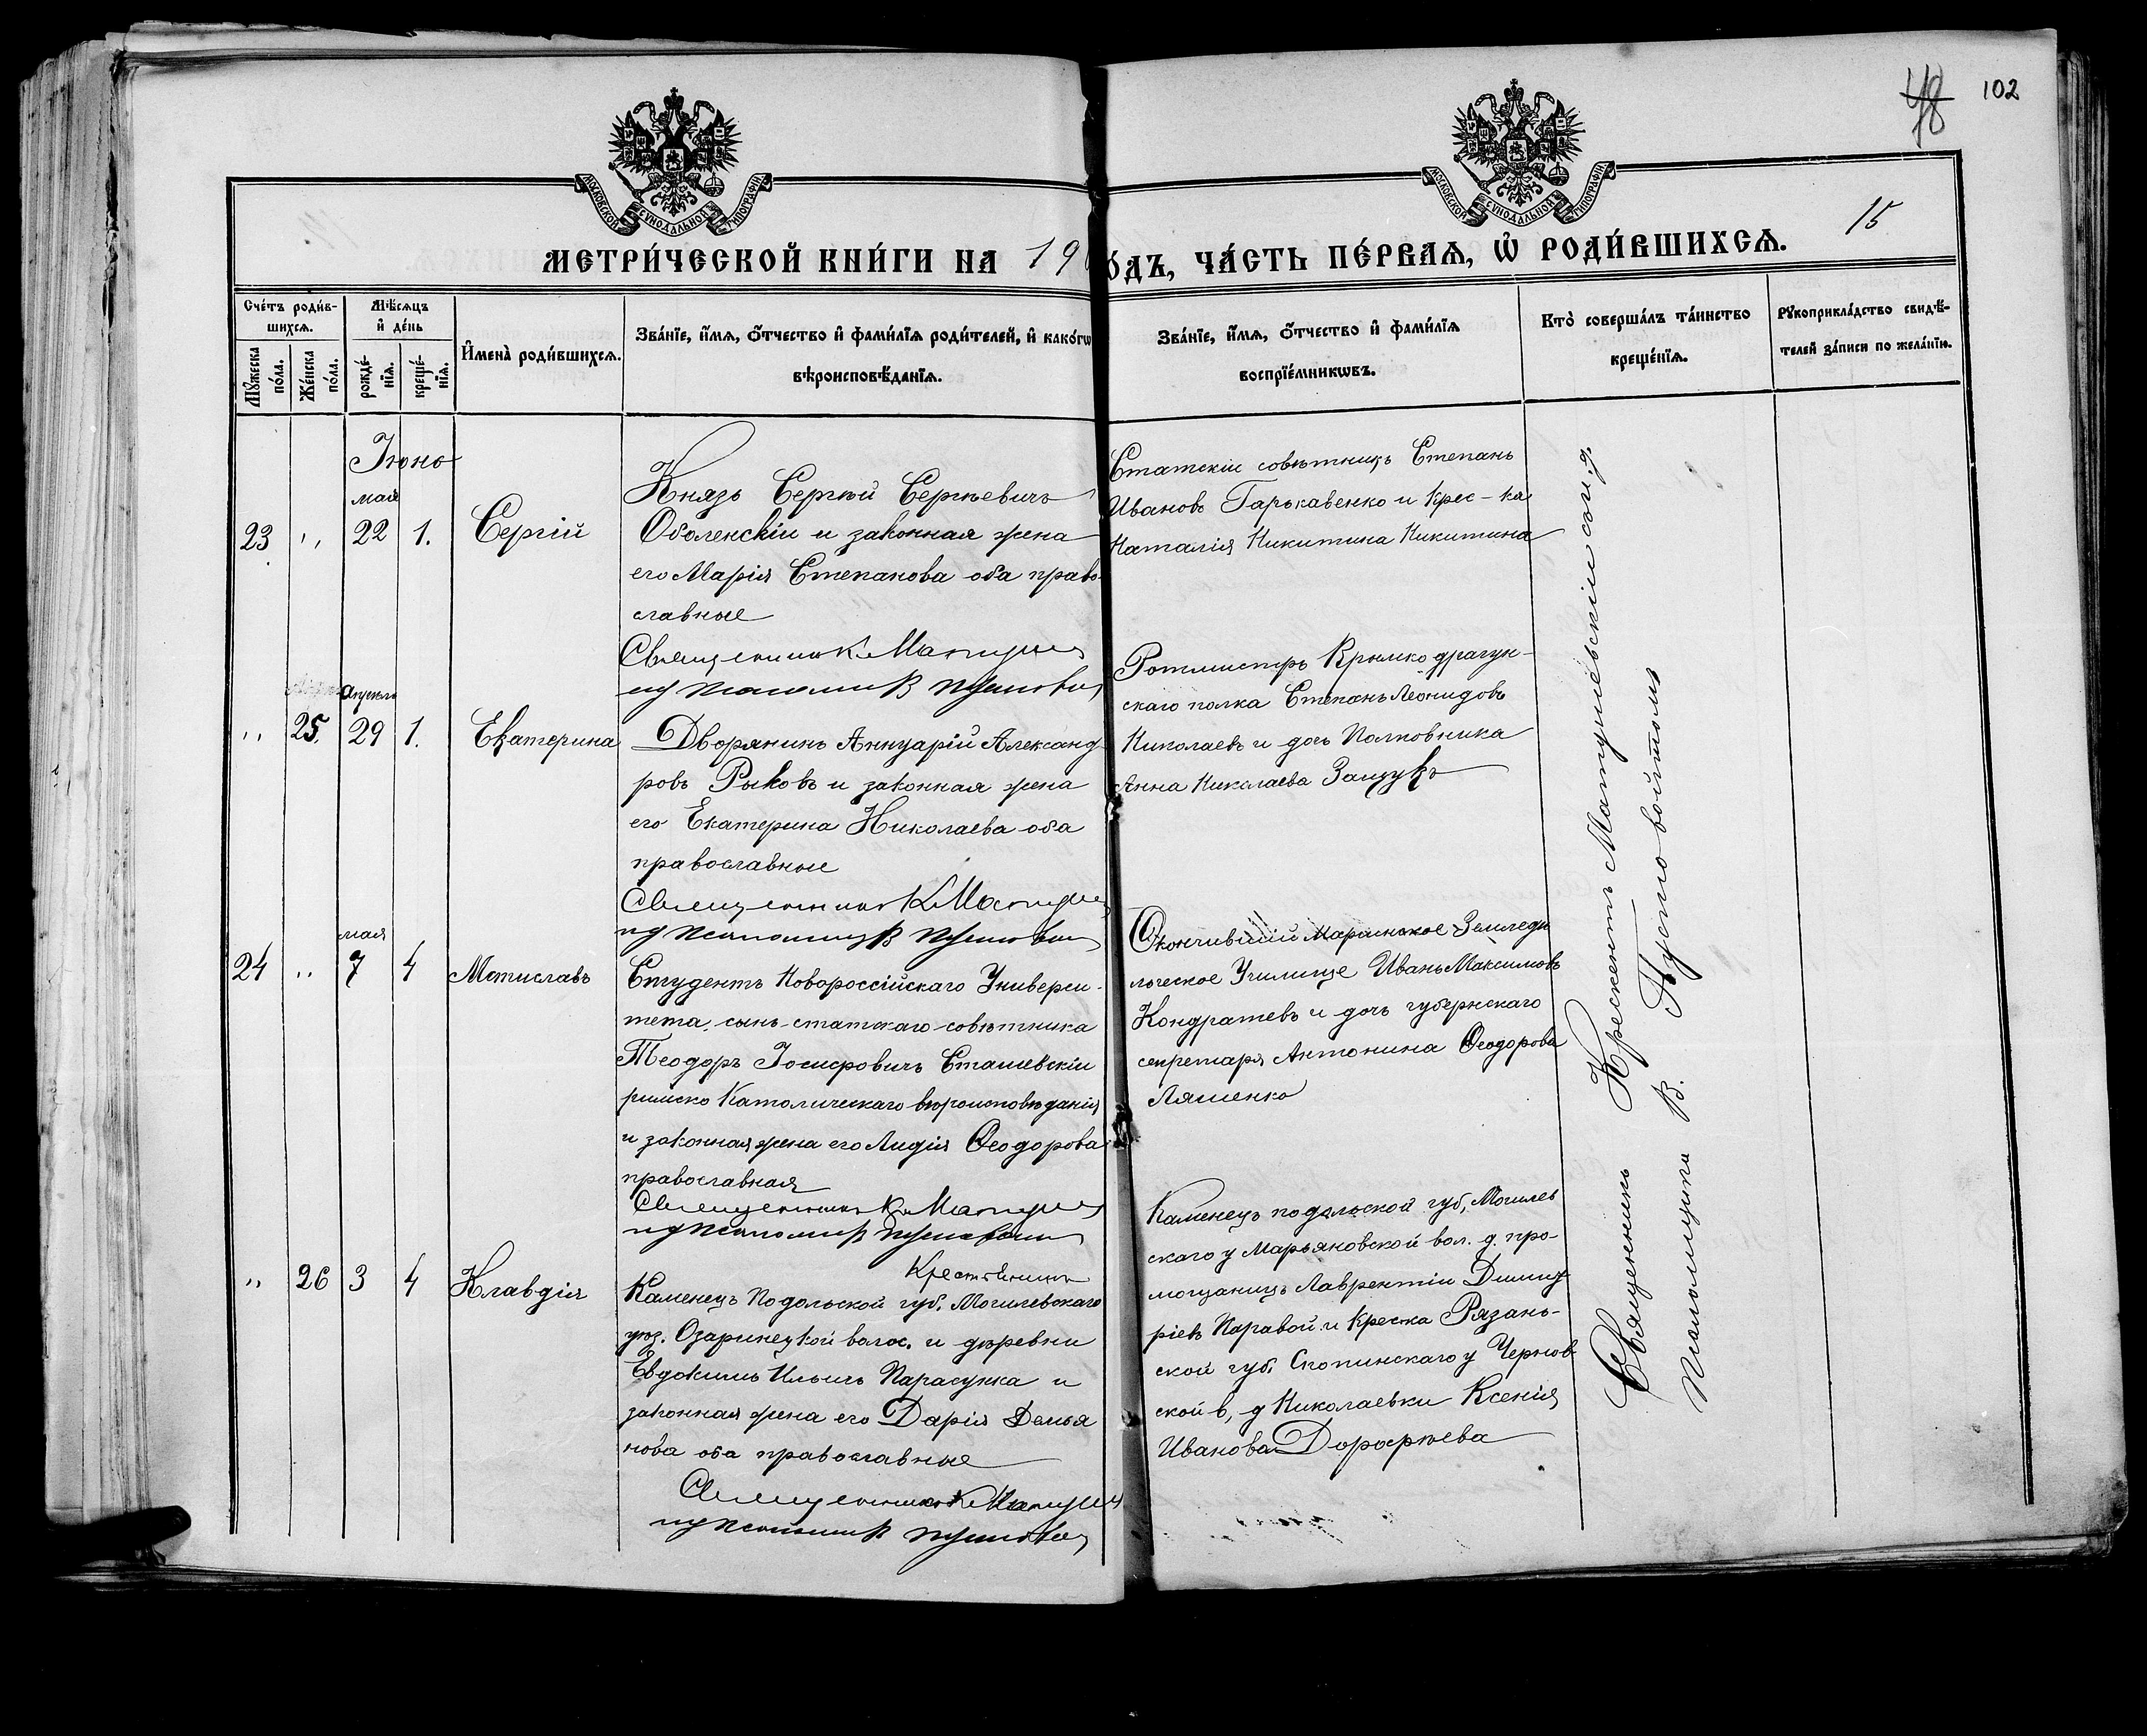 48 102
МОСКОВСКОЙ СѴНОДАЛЬНОЙ ТИПОГРАФІИ
МОСКОВСКОЙ СѴНОДАЛЬНОЙ ТИПОГРАФІИ
15
МЕТРИ́ЧЕСКОЙ КНИ́ГИ НА 190
О́ДЪ, ЧА́СТЬ ПЕ́РВАѦ, Ѡ҆ РОДИ́ВШИХСѦ.
Сче́тъ роди́в-
шихсѧ.
Мѣ́сѧцъ
и҆ де́нь
Мꙋ́жеска
по́ла.
Же́нска
по́ла.
рожде́-
нїѧ.
креще́-
нїѧ.
И҆мена̀ роди́вшихсѧ.
Зва́нїе, и҆́мѧ, ѻ҆́тчество и҆ фами́лїѧ роди́телей, и҆ како́гѡ
вѣроисповѣ́данїѧ.
Зва́нїе, и҆́мѧ, ѻ҆́тчество и҆ фами́лїѧ
воспрїе́мникѡвъ.
Кто̀ соверша́лъ та́инство
креще́нїѧ.
Рꙋкоприкла́дство свидѣ́-
телей за́писи по жела́нїю.
Іюнь
мая
23 " 22 1. Сергій
Князь Сергѣй Сергѣевичъ
Оболенскій и законная жена
его Марія Степанова оба право-
славные
Священник К. Матуше
Статскій совѣтникъ Степанъ
Ивановъ Гарькавенко и Крес-ка
Наталія Никитина Никитина
апрѣля
" 25. 29 1. Екатерина
Дворянинъ Аннуарій Александ-
ровъ Рыковъ и законная жена
его Екатерина Николаева оба
православные
Священник К. Матуше
Ротмистръ Крымско драгун-
скаго полка Степанъ Леонидовъ
Николаевъ и дочь Полковника
Анна Николаева Защукъ
мая
24 " 7 4 Мстиславъ
Студентъ Новороссійскаго Универси-
тета, сынъ статскаго совѣтника
Теодоръ Іосифовичъ Сташевскій
римско Католическаго вѣроисповѣданія
и законная жена его Лидія Ѳеодорова
православная
Священник К. Матуше
Окончившій Маріинское Земледѣ
льческое Училище Иванъ Максимовъ
Кондратевъ и дочь губернскаго
секретаря Антонина Ѳеодорова
Ляшенко
" 26 3 4 Клавдія
Крестьянинъ
Каменецъ Подольской губ. Могилевскаго
уѣз. Озаринецкой волос. и деревни
Евдокимъ Ильичъ Парасунка и
законная жена его Дарія Демья
нова оба православные
Священник К. Матуше
Каменецъ подольской губ, Могилев
скаго у Марьяновской вол. д. про-
мощаницъ Лаврентій Димит
ріевъ Паравой и Крес-ка Рязань-
ской губ. Скопинскаго у Чернов-
ской в, д Николаевки Ксенія
Иванова Дорофѣева
Священникъ Крескентъ Матушевскій
Псаломщикъ В. Пустовойтовъ